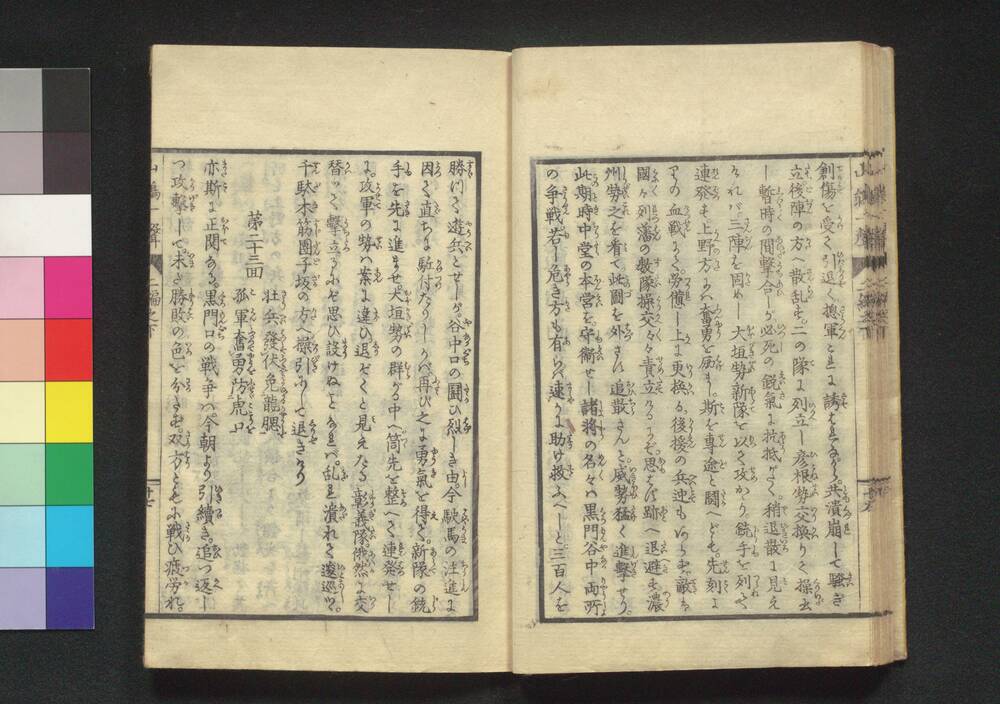 創傷を受て引退く總軍とよに誘はれながら共潰崩して騒き
立後陣の方へ散乱す。二の隊に列立し彦根勢交換りて操出
し暫時の間撃合しが必死の鋭氣に抗抵がたく稍退散に見え
ければ三陣を固めし大垣勢新隊を以て攻かゝり銃手を列て
連発す。上野方には奮勇を励まし斯を専途と闘へども。先刻よ
りの血戦にて労憊し上に更換る後援の兵
國々列藩の数隊操交々々責立けるにぞ思はず跡へ退避を濃
州勢之を看て此圖を外さん追散さんと威勢猛く進撃せり。
此期時中堂の本営を守衛せし諸将の名々は黒門谷中両所
の争戦若し危き方も有らば速かに助け救ふべしと三百人を
勝りて遊兵とせしが谷中口の闘ひ烈しき由。今駃馬の注進に
因て直ちに駈付たりしかば再び之に勇氣を得て。新隊の銃
手を先に進ませ。大垣勢の群がる中へ筒先を整へて連発せし
に。攻軍の勢は案に違ひ退ぞくと見えたる彰義隊俄然に交
替つて撃立るにぞ思ひ設けぬことなれば。乱れ潰れて逡巡つ。
千駄木筋團子坂の方へ操引にして退きけり
第二十三回
壮兵發伏免龍腮
孤軍奮勇防虎口
亦斯に正門なる。黒門口の戦争は。今朝より引續き。追つ返し
つ攻撃して未だ勝敗の色を分たず。双方ともに戦ひ疲労れ。
二編之下